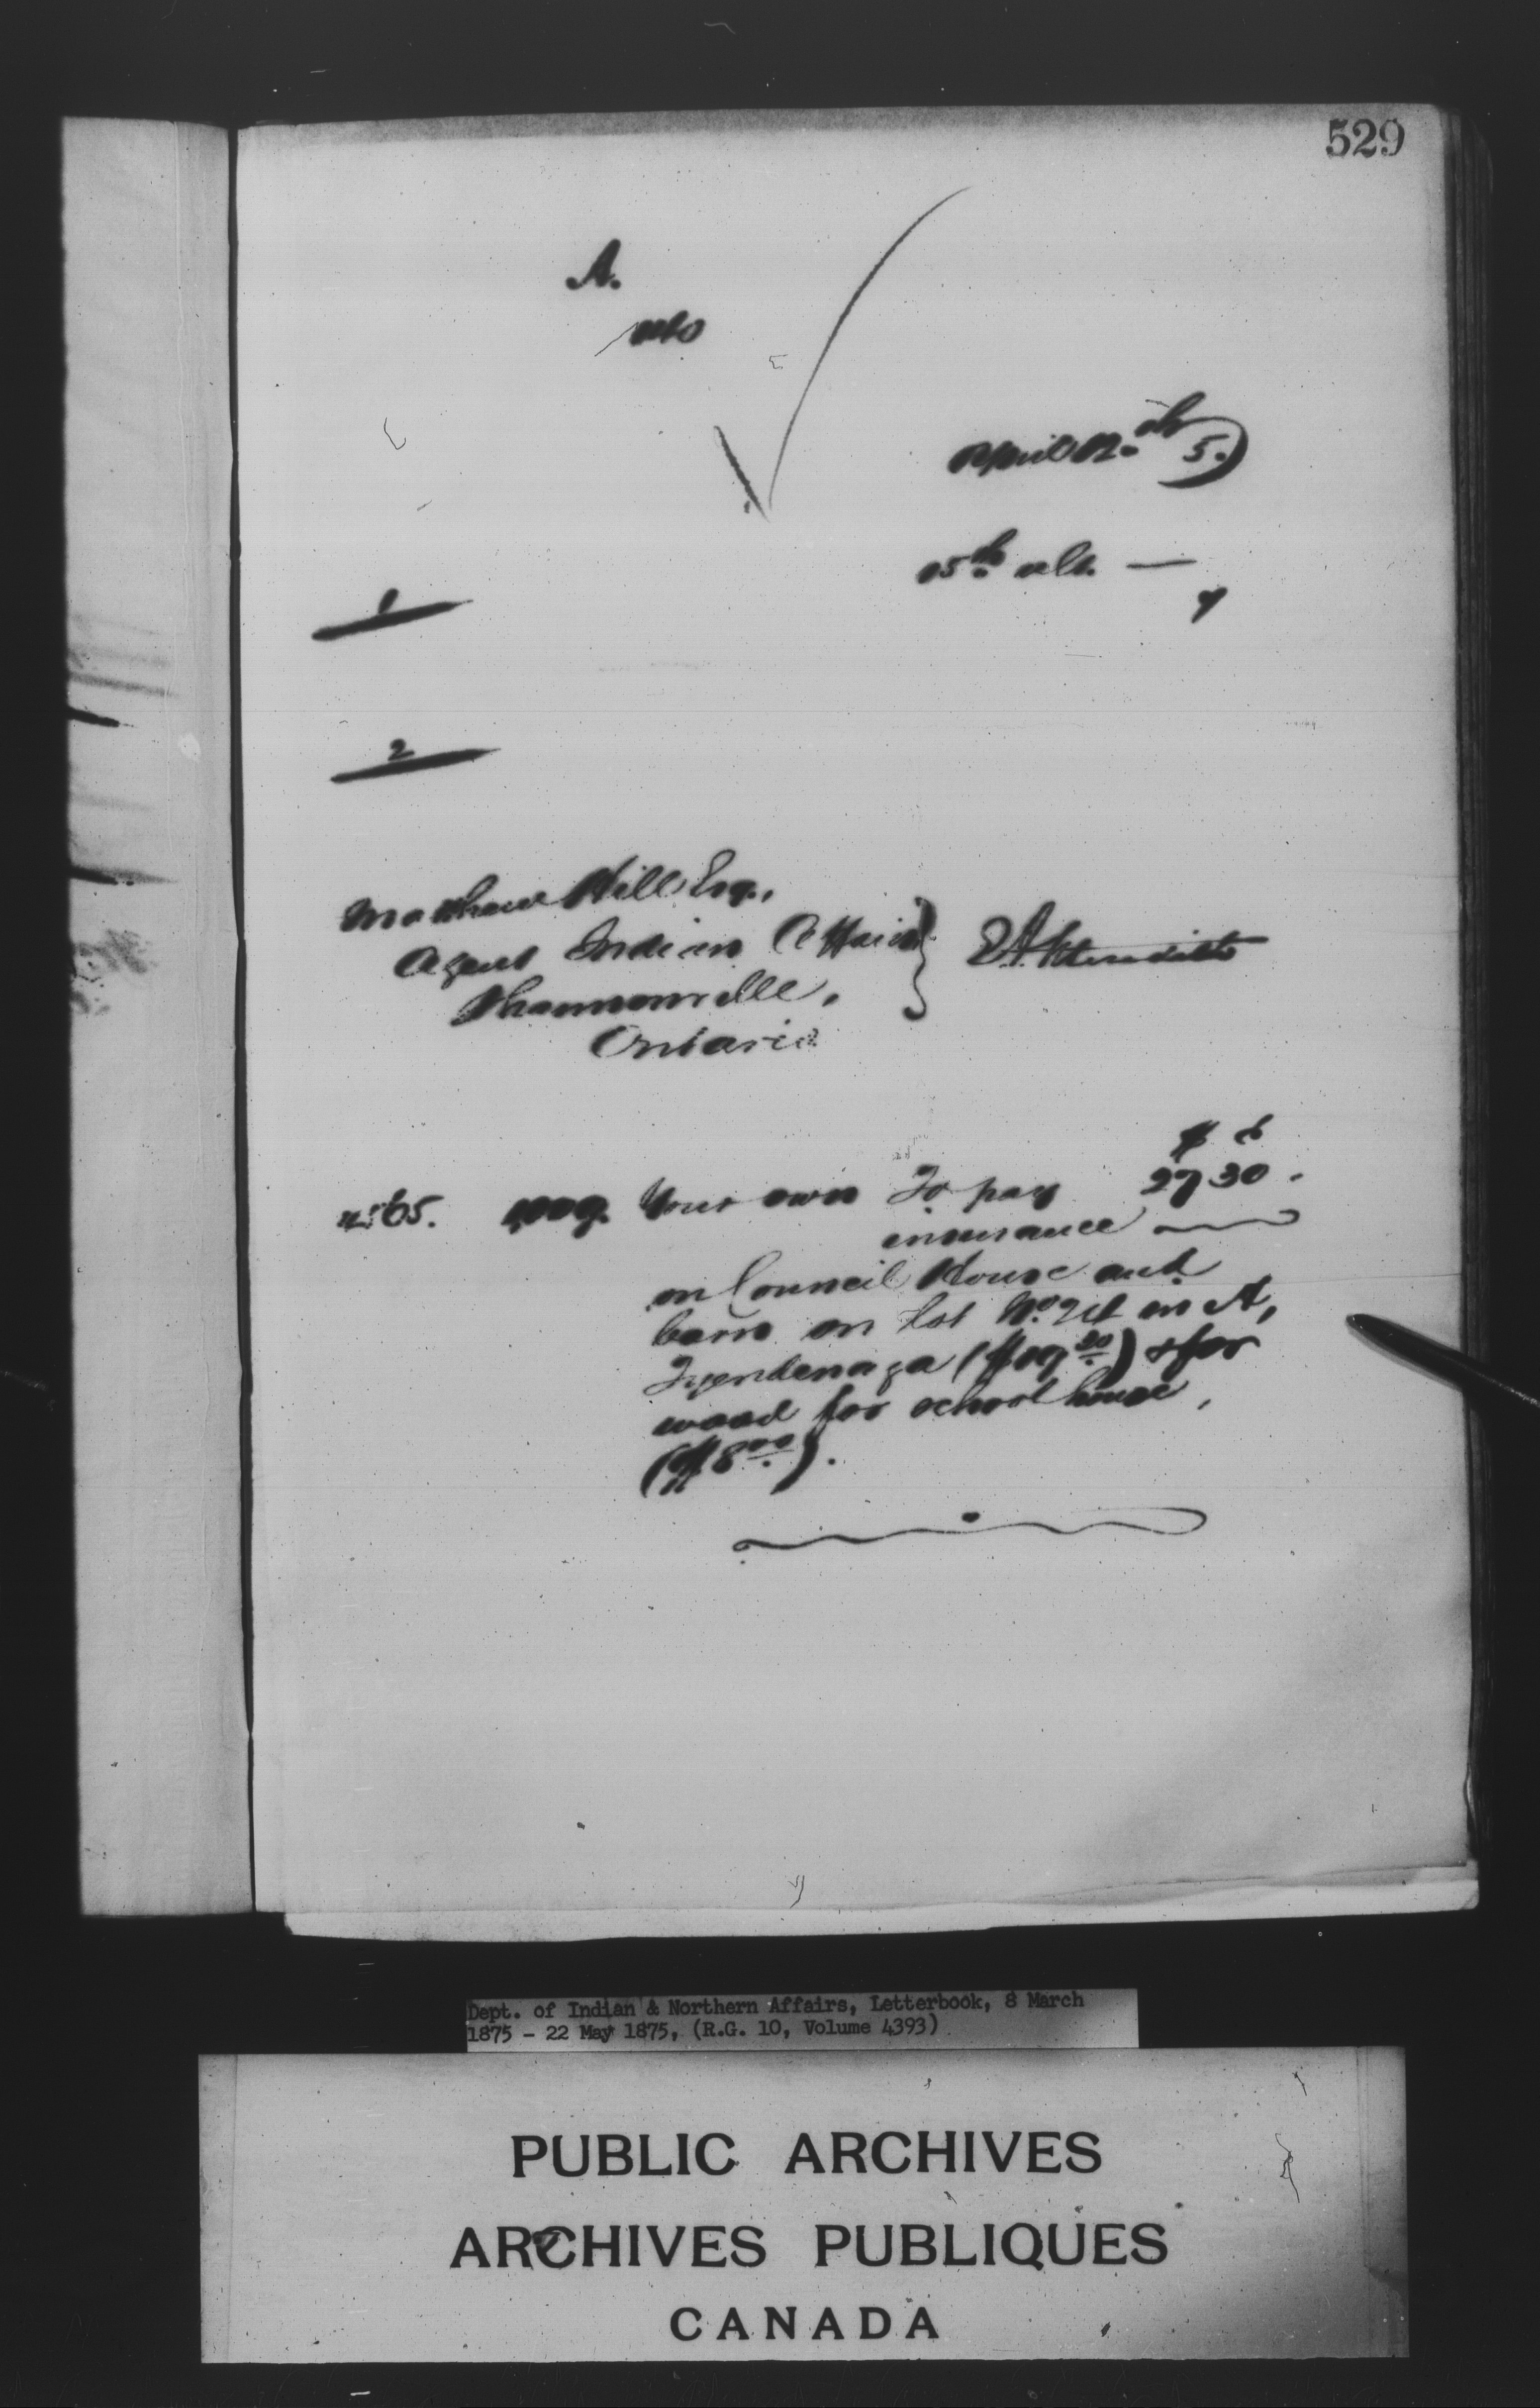 529
A.
April 12.th 5.)
15th ult. —
1
2
Matthew Hill Esq.,
Agent Indian Affairs
Shannonville,
Ontario
EAMeredith
$ c
4565. Your own To pay 27 30.
insurance
on Council House and
barn on lot No. 24 in A,
Tyendenaga ($19 30) & for
wood for school house,
($8 00).
Dept. of Indian & Northern Affairs, Letterbook, 8 March
1875 - 22 May 1875, (R.G. 10, Volume 4393)
PUBLIC ARCHIVES
ARCHIVES PUBLIQUES
CANADA